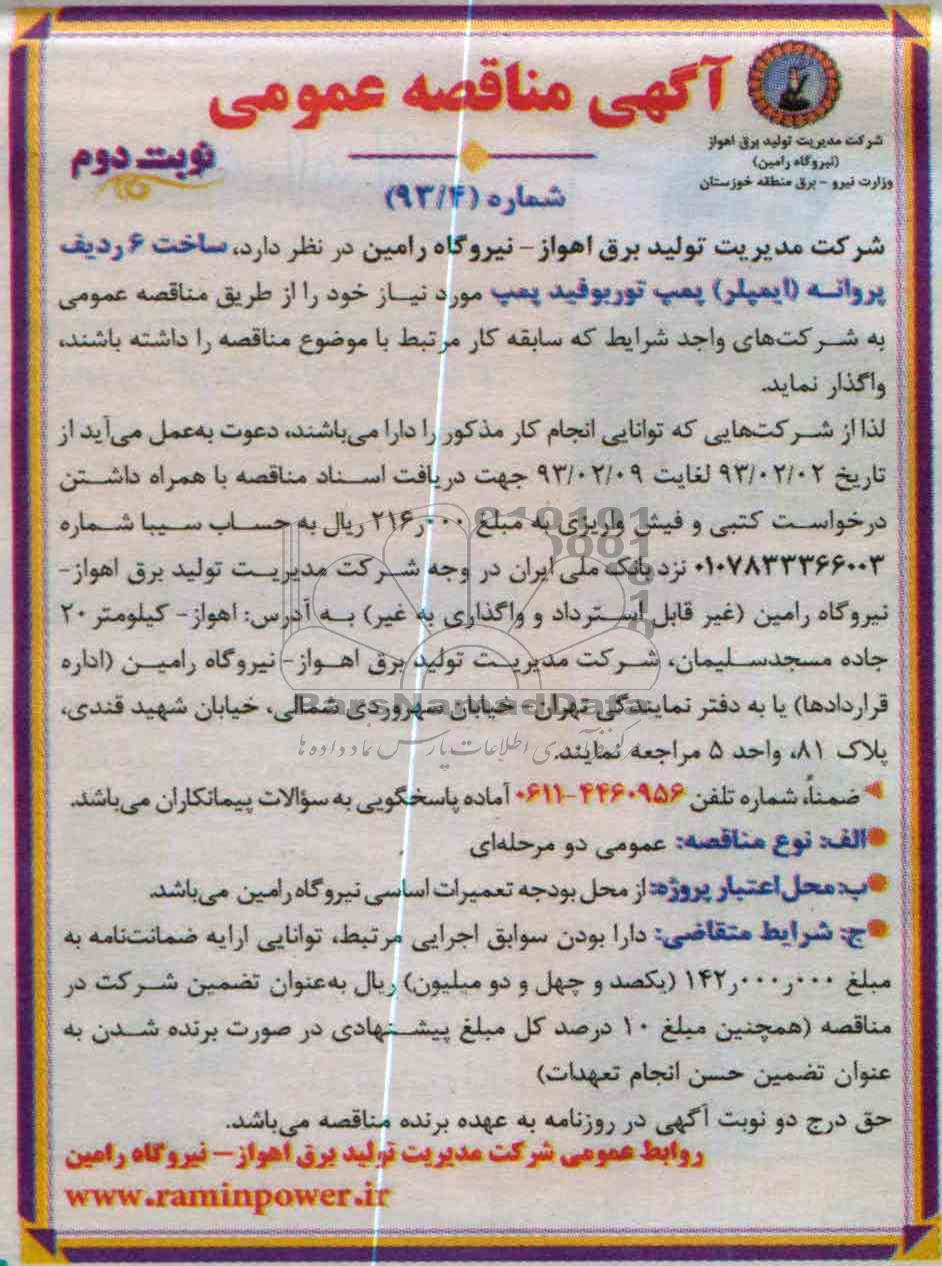 آگهی مناقصه عمومی
شرکت مدیریت تولید برق اهواز
(نیروگاه رامین)
وزارت نیرو - برق منطقه خوزستان
نوبت دوم
شماره (۹۳/۴)
شرکت مدیریت تولید برق اهواز - نیروگاه رامین در نظر دارد، ساخت ۶ ردیف
پروانه (ایمپلر) پمپ توربوفید پمپ مورد نیاز خود را از طریق مناقصه عمومی
به شرکت‌های واجد شرایط که سابقه کار مرتبط با موضوع مناقصه را داشته باشند،
واگذار نماید.
لذا از شرکت‌هایی که توانایی انجام کار مذکور را دارا می‌باشند، دعوت به‌عمل می‌آید از
تاریخ ۹۳/۰۲/۰۲ لغایت ۹۳/۰۲/۰۹ جهت دریافت اسناد مناقصه با همراه داشتن
درخواست کتبی و فیش واریزی به مبلغ ۲۱۶ر۰۰۰ ریال به حساب سیبا شماره
۰۱۰۷۸۳۳۳۶۶۰۰۳ نزد بانک ملی ایران در وجه شرکت مدیریت تولید برق اهواز-
نیروگاه رامین (غیر قابل استرداد و واگذاری به غیر) به آدرس: اهواز- کیلومتر ۲۰
جاده مسجدسلیمان، شرکت مدیریت تولید برق اهواز- نیروگاه رامین (اداره
قراردادها) یا به دفتر نمایندگی تهران- خیابان سهروردی شمالی، خیابان شهید قندی،
پلاک ۸۱، واحد ۵ مراجعه نمایند.
ضمناً، شماره تلفن ۴۴۶۰۹۵۶-۰۶۱۱ آماده پاسخگویی به سؤالات پیمانکاران می‌باشد.
الف: نوع مناقصه: عمومی دو مرحله‌ای
ب: محل اعتبار پروژه: از محل بودجه تعمیرات اساسی نیروگاه رامین می‌باشد.
ج: شرایط متقاضی: دارا بودن سوابق اجرایی مرتبط، توانایی ارایه ضمانت‌نامه به
مبلغ ۱۴۲ر۰۰۰ر۰۰۰ (یکصد و چهل و دو میلیون) ریال به‌عنوان تضمین شرکت در
مناقصه (همچنین مبلغ ۱۰ درصد کل مبلغ پیشنهادی در صورت برنده شدن به
عنوان تضمین حسن انجام تعهدات)
حق درج دو نوبت آگهی در روزنامه به عهده برنده مناقصه می‌باشد.
روابط عمومی شرکت مدیریت تولید برق اهواز- نیروگاه رامین
www.raminpower.ir